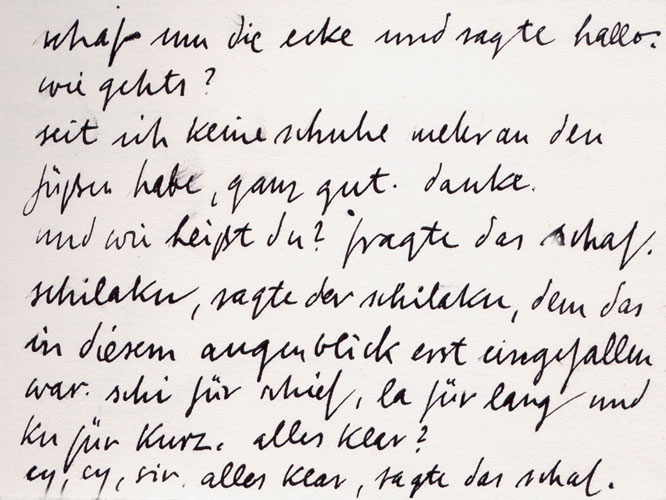 schaf um die ecke und sagte hallo.
wie gehts?
seit ich keine schuhe mehr an den
füßen habe, ganz gut. danke.
und wie heißt du? fragte das schaf.
schilaku, sagte der schilaku, dem das
in diesem augenblick erst eingefallen
war. schi für schief, la für lang und
ku für kurz. alles klar?
ey, ey, sir. alles klar, sagte das schaf.